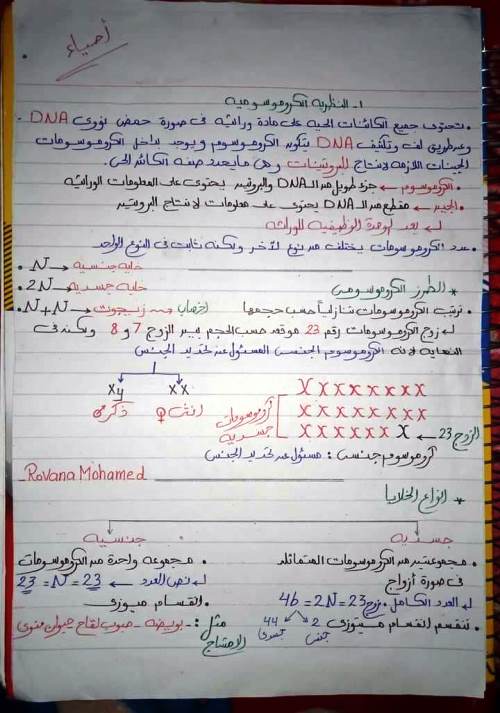 أحياء
١- النظرية الكروموسومية
• تحتوى جميع الكائنات الحية على مادة وراثية فى صورة حمض نووى DNA
وعن طريق لف وتكثيف DNA يتكون الكروموسوم ويوجد بداخل الكروموسومات
الجينات اللازمة لانتاج البروتينات وهى ما يحدد صفة الكائن الحى.
• الكروموسوم ← جزئ طويل من الـ DNA والبروتين يحتوى على المعلومات الوراثية
• الجين ← مقطع من الـ DNA يحتوى على معلومات لانتاج البروتين
↳ يعد الوحدة الوظيفية للوراثة
• عدد الكروموسومات يختلف من نوع لآخر ولكنه ثابت فى النوع الواحد
• N → خلية جنسية
• 2N → خلية جسدية
• N+N → زيجوت اخصاب
* الطرز الكروموسومى
• ترتيب الكروموسومات تنازلياً حسب حجمها
↳ زوج الكروموسومات رقم 23 موقعه حسب الحجم بين الزوج 7 و 8 ولكنه فى
النهاية لانه الكروموسوم الجنسى المسئول عن تحديد الجنس
xy xx
ذكر ♂ انثى ♀
X X X X X X X X
X X X X X X X X
X X X X X X X ← الزوج 23
كروموسومات
جسدية
كروموسوم جنسى : مسئول عن تحديد الجنس
Rovana Mohamed
* انواع الخلايا
جسدية جنسية
• مجموعتين من الكروموسومات المتماثلة
فى صورة أزواج
↳ العدد الكامل . 23 زوج = 2N = 46
• تنقسم انقسام ميتوزى 2 جنسى 44 جسدى
• مجموعة واحدة من الكروموسومات
↳ نص العدد ← 23 = N = 23
• انقسام ميوزى
مثل :- بويضة - حبوب لقاح حيوان منوى
الامشاج